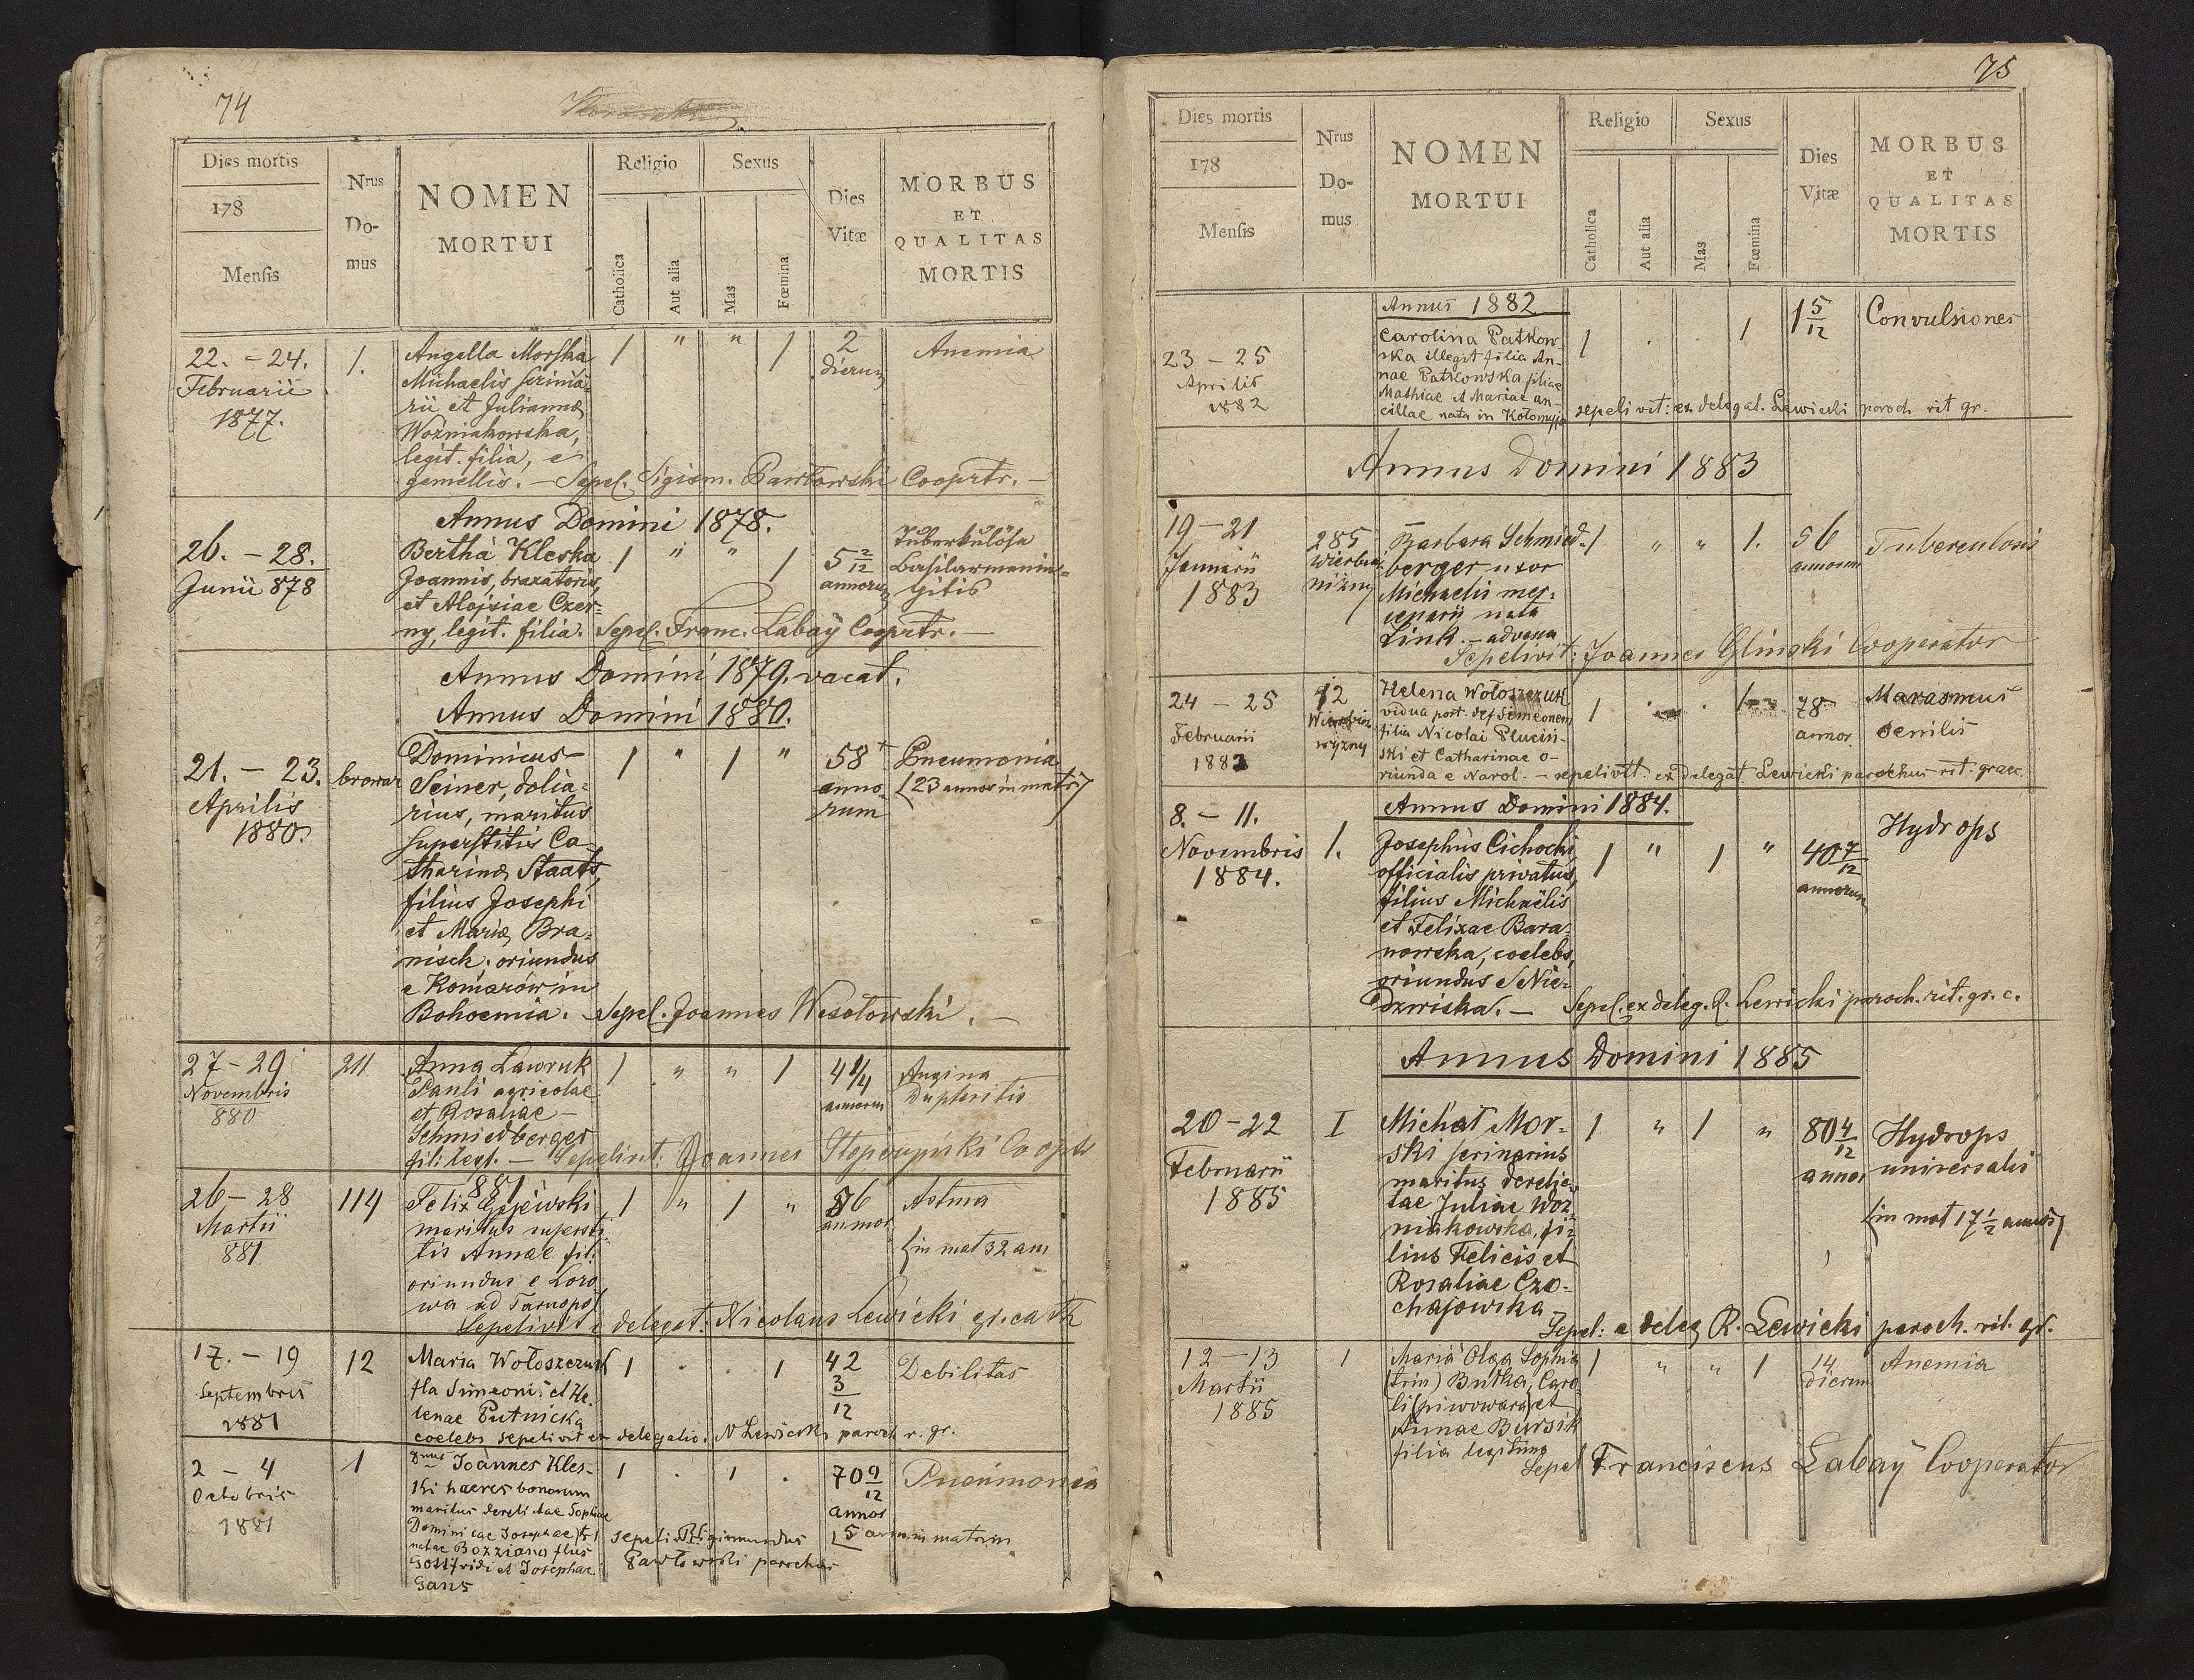 74
Dies mortis
178
Menſis
Nrus
Do-
mus
NOMEN
MORTUI
Religio
Catholica
Aut alia
Sexus
Mas
Fœmina
Dies
Vitæ
MORBUS
ET
QUALITAS
MORTIS
22. – 24.
Februarii
1877.
1.
Angella Morska
Michaelis
rii et Julianna
Wozniakowska,
legit. filia, e
gemellis. – Sepel. Sigism. Pawłowski Cooprtr. –
1 " " 1
2
dierum
Anemia
Annus Domini 1878.
26. – 28.
Junii 878
Bertha Kleska
Joannis, braxatoris,
et Alojsiae Czer-
ny, legit. filia. Sepel. Franc. Labaÿ Cooprtr. –
1 " " 1
5 2/12
annorum
Tuberkulosa
Basilarmenin-
gitis
Annus Domini 1879. vacat.
Annus Domini 1880.
21. – 23.
Aprilis
1880.
browar
Dominicus
Seiner, dolia-
rius, maritus
superstitis Ca-
tharina Staats,
filius Josephi
et Maria Bra-
nisch. oriundus
e Komárów in
Bohoemia. – Sepel. Joannes Wesołowski. –
1 " 1 "
58
anno-
rum
Pneumonia
[23 annos in matr]
27 – 29
Novembris
880
211
Anna Lawruk
Pauli agricolae
et Rosaliae
Schmiedberger
fili legt. – Sepelivit: Joannes Cooptr
1 " " 1
4 1/4
annorum
Angina
Dupteritis
881
26 – 28
Martii
881
114
Felix
maritus supersti
tis Annae fil:
oriundus e Loro
wa ad Tarnopol
Sepelivit e delegat: Nicolaus Lewicki gr. cath
1 " 1 "
56
annor
Astma
[in mat 32 an
17. – 19
Septembris
1881
12
Maria Wołoszczuk
fla Simeonis et He-
lenae Putnicka
coelebs sepelivit ex delegatio. N Lewicki paroch r. gr.
1 . . 1
42
3
12
Debilitas
2 – 4
Octobris
1881
1
Joannes Kles-
ki haeres bonorum
maritus derelictae Sophiae
Dominicae Josephae
natae Bozziano flius
Gottfridi et Josephae
Gans
sepelivit Sigismundus
Pawłowski parochus
1 . 1 .
70 9/12
annor
[5 ann. in matrim
Pneumonia
75
Dies mortis
178
Menſis
Nrus
Do-
mus
NOMEN
MORTUI
Religio
Catholica
Aut alia
Sexus
Mas
Fœmina
Dies
Vitæ
MORBUS
ET
QUALITAS
MORTIS
Annus 1882
23 – 25
Aprilis
1882
Carolina Patkow-
ska illegit filia An-
nae Patkowska filiae
Mathiae et Mariae an-
cillae nata in Kołomyja sepelivit: ex delegat. Lewicki paroch. rit gr.
1 . . 1
1 5/12
Convulsiones
Annus Domini 1883
19 – 21
Januarii
1883
285
Wierbiąż
niżny
Barbara Schmied-
berger uxor
Michaelis mer-
cenarii nata
Link. – advena
Sepelivit: Joannes Glinski Cooperator
1 " " 1.
56
annorum
Tuberculosis
24 – 25
Februarii
1883
12
Wierbiąż
wyżny
Helena Wołoszczuk
vidua post. def Simeonem
filia Nicolai Plucin-
ski et Catharinae o-
riunda e Narol. – sepelivit: ex delegat. Lewicki parochus rit: graec
1 . . 1
78
annor.
Marasmus
senilis
Annus Domini 1884.
8. – 11.
Novembris
1884.
1.
Josephus Cichocki,
officialis privatus,
filius Michaëlis
et Felixae Bara-
nowska, coelebs,
oriundus e Nie-
dzwiska. – Sepel. ex deleg. R. Lewicki paroch. rit. gr. c.
1 " 1 "
40 7/12
annorum
Hydrops
Annus Domini 1885
20 – 22
Februarii
1885
I
Michał Mor-
ski
maritus derelic-
tae Juliae Woz-
niakowska, fi-
lius Felicis et
Rosaliae Czo-
chajowska
Sepel: e deleg R. Lewicki paroch. rit. gr.
1 " 1 "
80 4/12
annor
Hydrops
universalis
[in mat 17 1/2 annos]
12 – 13
Martii
1885
1
Maria Olga Sophia
(trin) Butka, Caro-
li (piwowara) et
Annae Bursik
filia legitima
Sepel Franciscus Labaÿ Cooperator
1 " " 1
14
dierum
Anemia